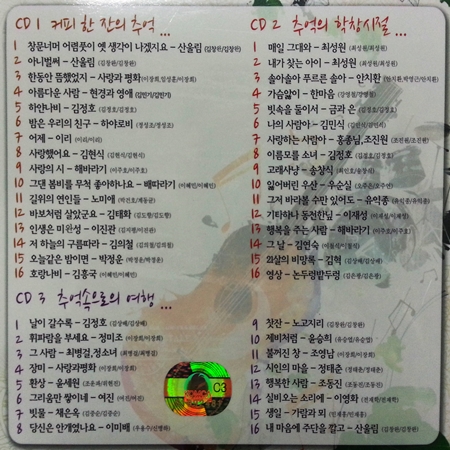 CD 1 커피 한 잔의 추억 ...
1 창문너머 어렴풋이 옛 생각이 나겠지요 - 산울림 (김창완/김창완)
2 아니벌써 - 산울림 (김창완/김창완)
3 한동안 뜸했었지 - 사랑과 평화
4 아름다운 사람 - 현경과 영애 (김민기/김민기)
5 하얀나비 - 김정호 (김정호/김정호)
6 밤은 우리의 친구 - 하야로비
7 어제 - 이리
8 사랑했어요 - 김현식 (김현식/김현식)
9 사랑의 시 - 해바라기 (이주호/이주호)
10 그댄 봄비를 무척 좋아하나요 - 배따라기 (이혜민/이혜민)
11 길위의 연인들 - 노미애
12 바보처럼 살았군요 - 김태화 (김도향/김도향)
13 인생은 미완성 - 이진관
14 저 하늘의 구름따라 - 김의철 (김의철/김의철)
15 오늘같은 밤이면 - 박정운 (박정운/박정운)
16 호랑나비 - 김흥국 (이혜민/이혜민)
CD 2 추억의 학창시절 ...
1 매일 그대와 - 최성원 (최성원/최성원)
2 내가 찾는 아이 - 최성원
3 솔아솔아 푸르른 솔아 - 안치환
4 가슴앓이 - 한마음 (강영철/강영철)
5 빗속을 둘이서 - 금과 은 (김정호/김정호)
6 나의 사람아 - 김민식
7 사랑하는 사람아 - 홍종임,조진원
8 이름모를 소녀 - 김정호 (김정호/김정호)
9 고래사냥 - 송창식
10 잃어버린 우산 - 우순실
11 그저 바라볼 수만 있어도 - 유익종
12 기타하나 동전한닢 - 이재성
13 행복을 주는 사람 - 해바라기 (이주호/이주호)
14 그 날 - 김연숙
15 21살의 비망록 - 김혁
16 영상 - 논두렁밭두렁
CD 3 추억속으로의 여행 ...
1 날이 갈수록 - 김정호 (김상배/김상배)
2 휘파람을 부세요 - 정미조 (이장희/이장희)
3 그 사람 - 최병걸,정소녀
4 장미 - 사랑과평화 (이장희/이장희)
5 환상 - 윤세원
6 그리움만 쌓이네 - 여진 (여진/여진)
7 빗물 - 채은옥 (김중순/김중순)
8 당신은 안개였나요 - 이미배
C3
9 찻잔 - 노고지리 (김창완/김창완)
10 제비처럼 - 윤승희
11 불꺼진 창 - 조영남 (이장희/이장희)
12 시인의 마을 - 정태춘 (정태춘/정태춘)
13 행복한 사람 - 조동진 (조동진/조동진)
14 실비오는 소리에 - 이영화
15 생일 - 가람과 뫼
16 내 마음에 주단을 깔고 - 산울림 (김창완/김창완)